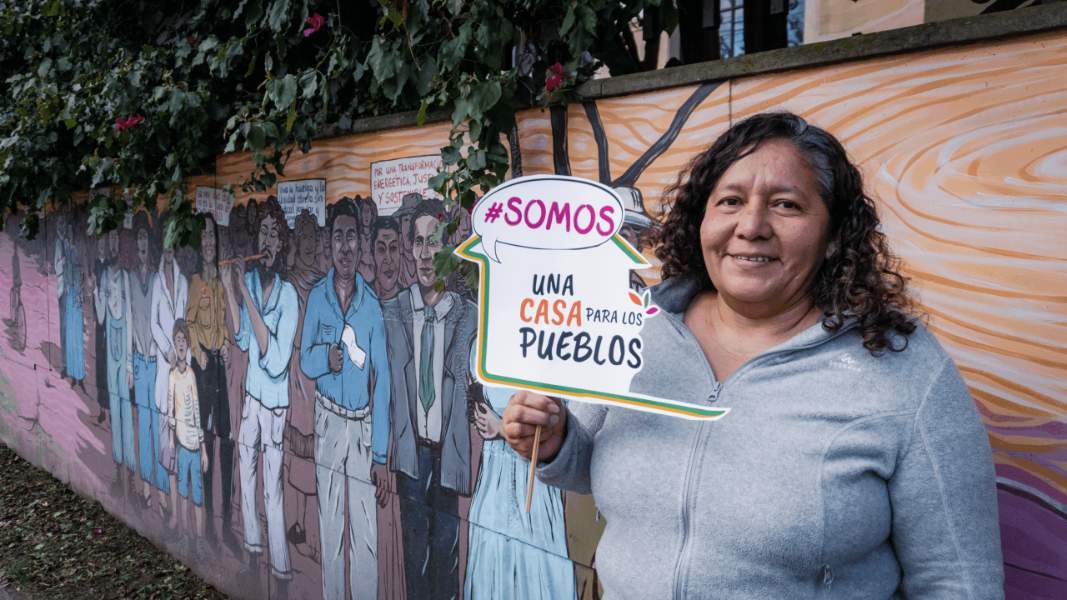 POR UNA TRANSFORMACIÓN
ENERGÉTICA JUSTA
Y SOSTENIBLE
#SOMOS
UNA
CASA PARA LOS
PUEBLOS